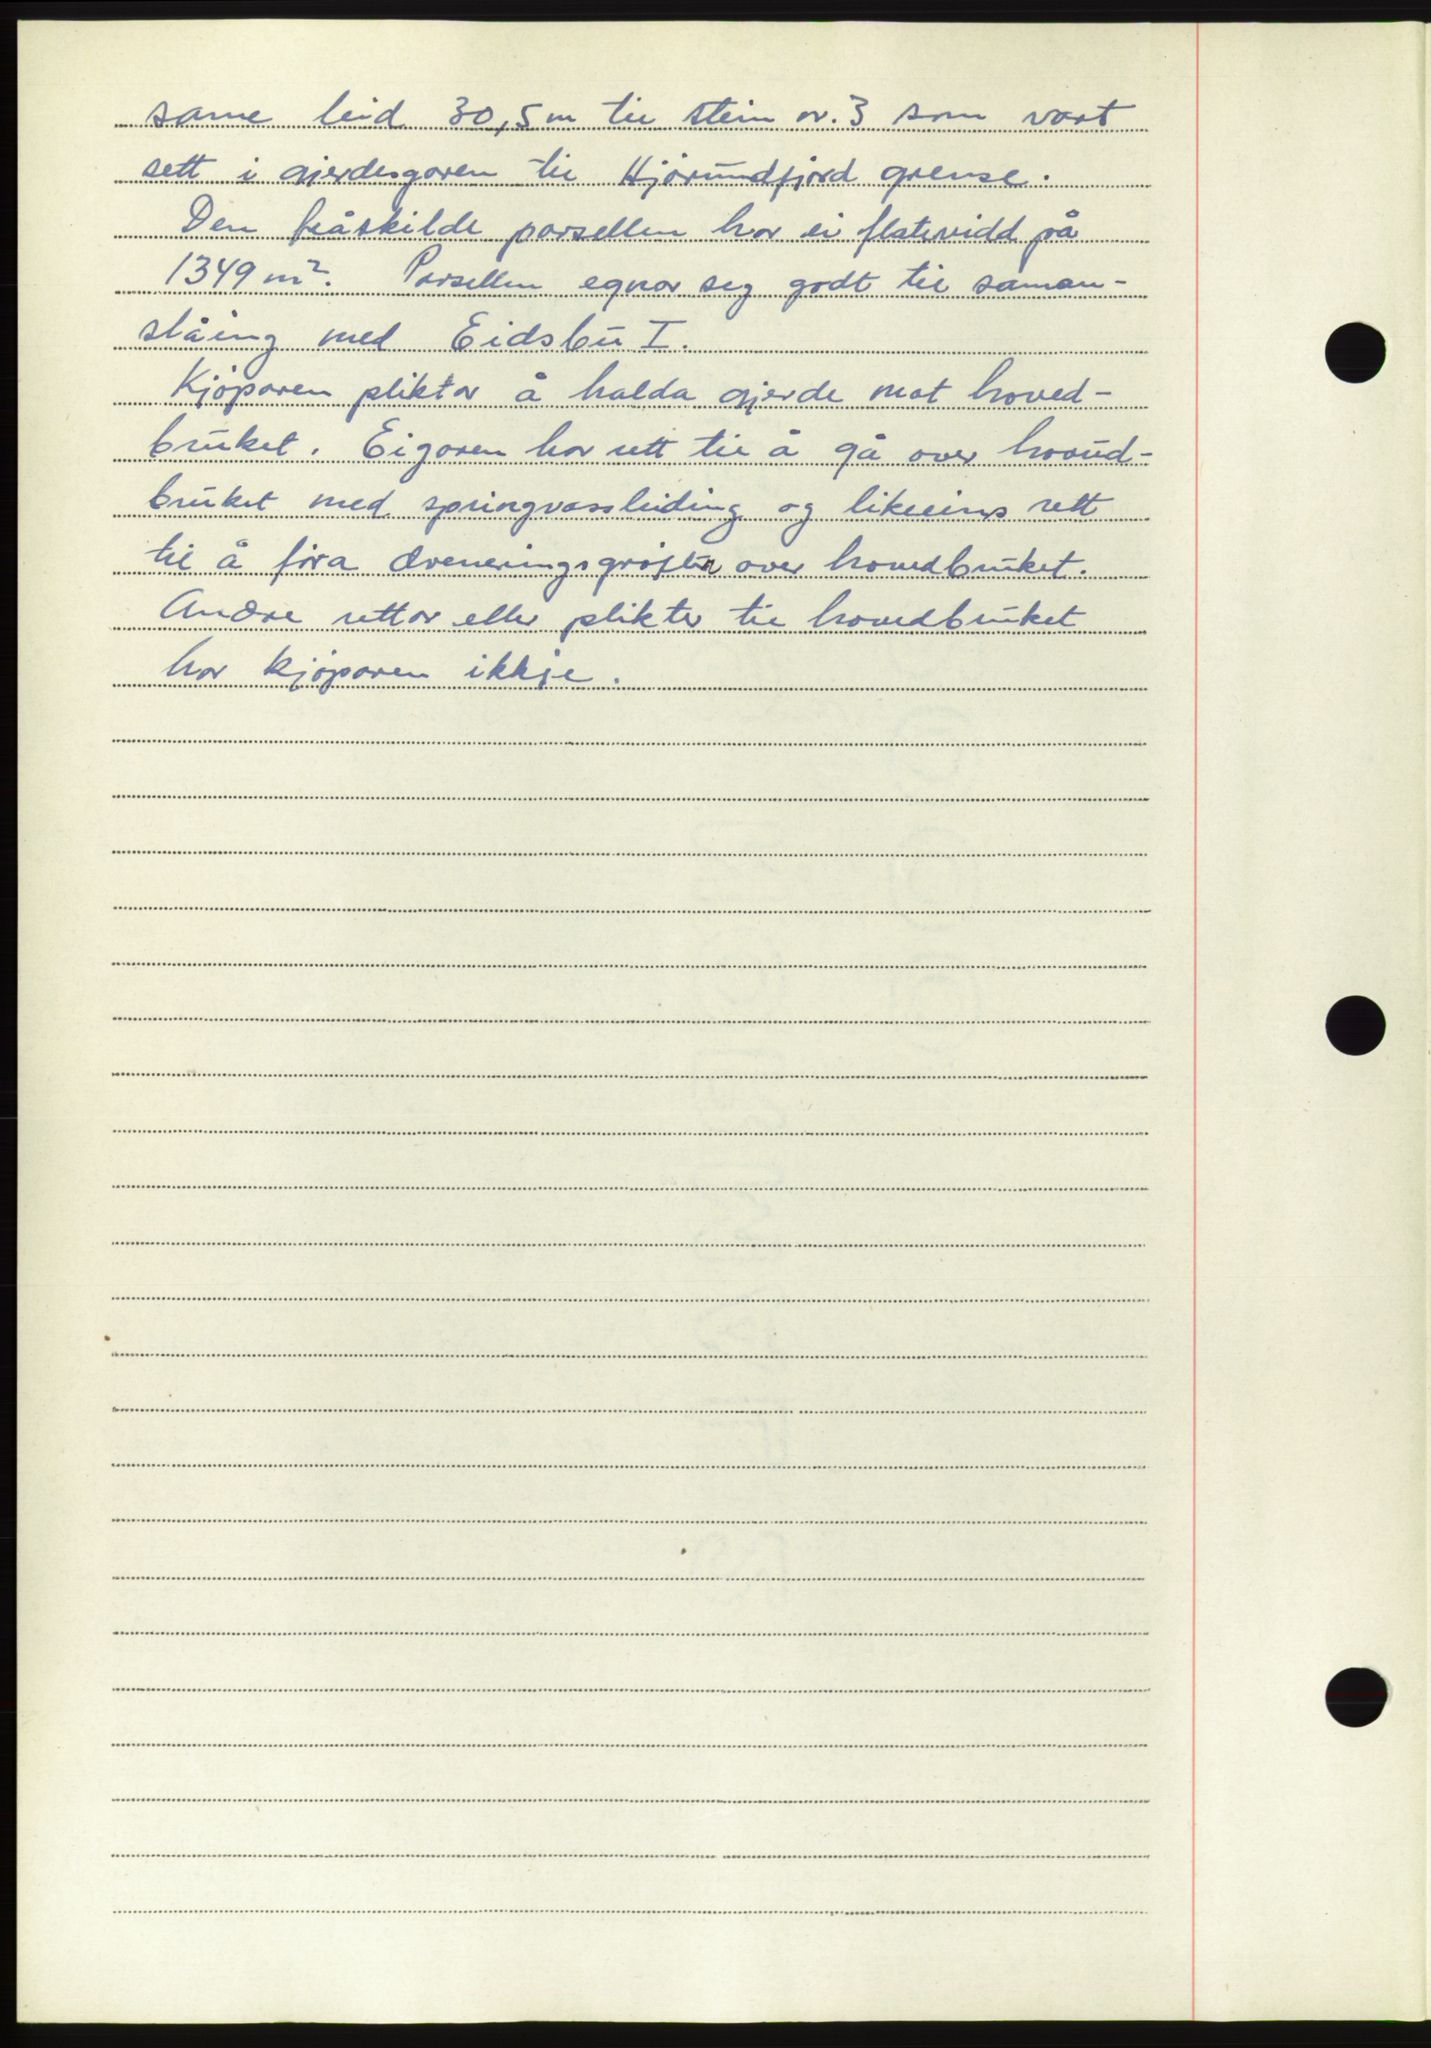 same leid 30,5 m til stein nr. 3 som vart
sett i gjerdesgaren til Hjørundfjord grense.
Den fråskilde parsellen har ei flatevidd på
1349 m². Parsellen egnar seg godt til saman-
slåing med Eidsbu I.
Kjøparen pliktar å halda gjerde mot hoved-
bruket. Eigaren har rett til å gå over hovud-
bruket med springvassleiding og likeeins rett
til å föra dreneringsgrøfter over hovedbruket.
Andre rettar eller plikter til hovedbruket
har kjøparen ikkje.